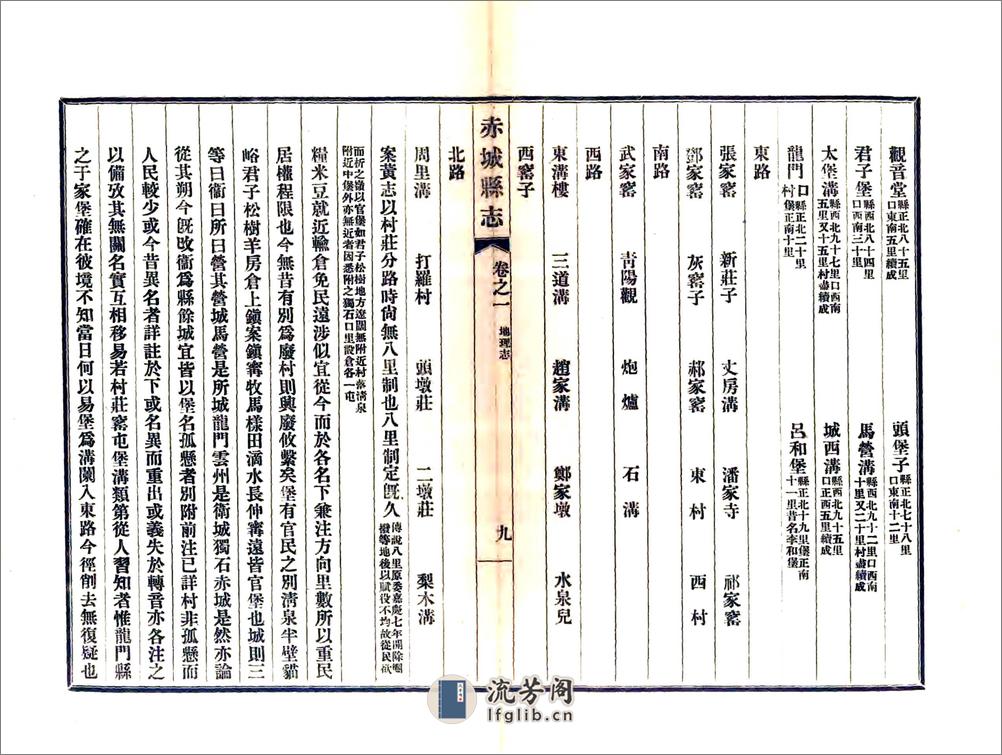 觀音堂縣正北八十五里口東南五里續成　頭堡子縣正北七十八里口東南十二里
君子堡縣西北八十四里口西南三十里　馬營溝縣西北九十二里口西南十里又二十里村盡續成
太堡溝縣西北九十七里口西南五里又十五里村盡續成　城西溝縣西北九十五里口正西五里續成
龍門口縣正北二十里村堡正南十里　呂和堡縣正北十九里堡正南十一里昔名李和堡
東路
張家窰　新莊子　丈房溝　潘家寺　祁家窰
鄧家窰　灰窰子　祁家窰　東村　西村
南路
武家窰　靑陽觀　炮爐　石溝
西路
東溝樓　三道溝　趙家溝　鄭家墩　水泉兒
西窰子
北路
周里溝　打羅村　頭墩莊　二墩莊　梨木溝
案黃志以村莊分路時尙無八里制也八里制定旣久傳說八里原委嘉慶七年開除堰撥等地後以賦役不均故從民欲
而折之嶺以官堡如君子松樹地方遼闊無附近村落淸泉附近中堡外亦無近者因悉附之獨石口里設倉各一屯
糧米豆就近輸倉免民遠涉似宜從今而於各名下兼注方向里數所以重民
居權程限也今無昔有別爲廢村則興廢攸繫矣堡有官民之別淸泉半壁貓
峪君子松樹羊房倉上鎭案鎭寗牧馬樣田滴水長伸寗遠皆官堡也城則三
等曰衞曰所曰營其營城馬營是所城龍門雲州是衞城獨石赤城是然亦論
從其朔今旣攺衞爲縣餘城宜皆以堡名孤懸者別附前注已詳村非孤懸而
人民較少或今昔異名者詳註於下或名異而重出或義失於轉音亦各注之
以備攷其無關名實互相移易若村莊窰屯堡溝類第從人習知者惟龍門縣
之于家堡確在彼境不知當日何以易堡爲溝闌入東路今徑削去無復疑也
赤城縣志
卷之一
地理志
九
流芳阁
lfglib.cn